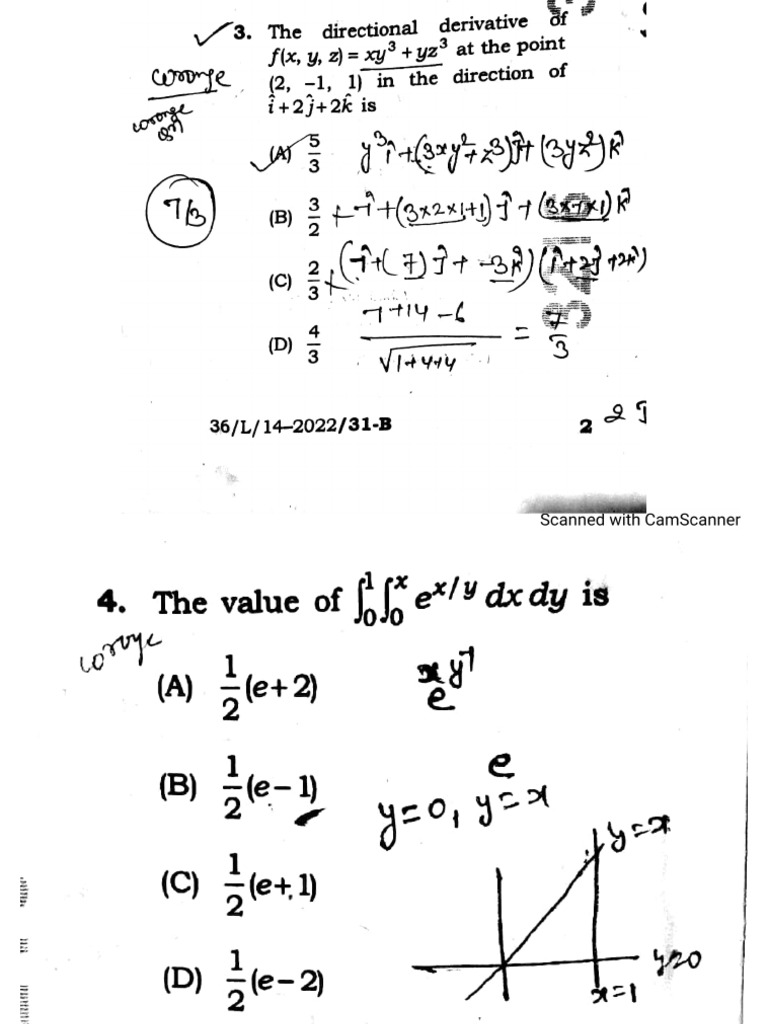 3. The directional derivative of
f(x, y, z) = xy³ + yz³ at the point
(2, −1, 1) in the direction of
î + 2ĵ + 2k̂ is
woronge
woronge
(A) 5/3
y³î + (3xy² + z³)ĵ + (3yz²)k̂
7/3
(B) 3/2
(3×2×1+1)ĵ +
(C) 2/3
(7)ĵ + −3k̂) (î + 2ĵ + 2k̂)
(D) 4/3
+14 −6
√1+4+4
= 7/3
36/L/14–2022/31-B
2
Scanned with CamScanner
4. The value of ∫₀¹∫₀ˣ e^(x/y) dx dy is
(A) 1/2(e + 2)
(B) 1/2(e − 1)
e
y=0, y=x
(C) 1/2(e + 1)
y=x
(D) 1/2(e − 2)
y=0
x=1